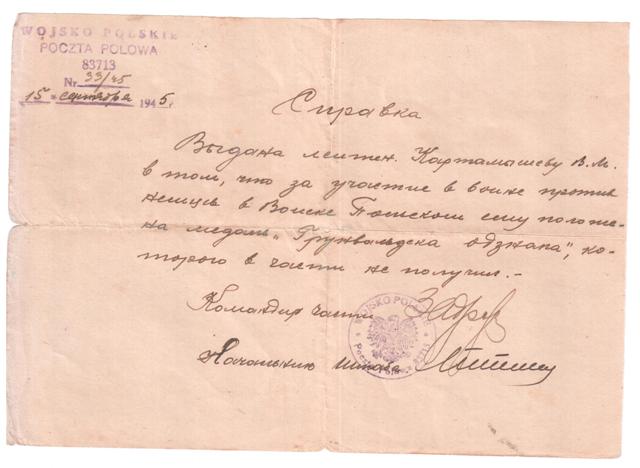 WOJSKO POLSKIE
POCZTA POLOWA
83713
Nr. 33/45
15 = сентября 1945 г
Справка
Выдана лейтен. Картамышеву В. М.
в том, что за участие в войне против
немцев в Войске Польском ему положе-
на медаль „Грунвальдска одзнака", ко-
торого в части не получил. -
Командир части
Начальник штаба
WOJSKO POLSKIE
83713